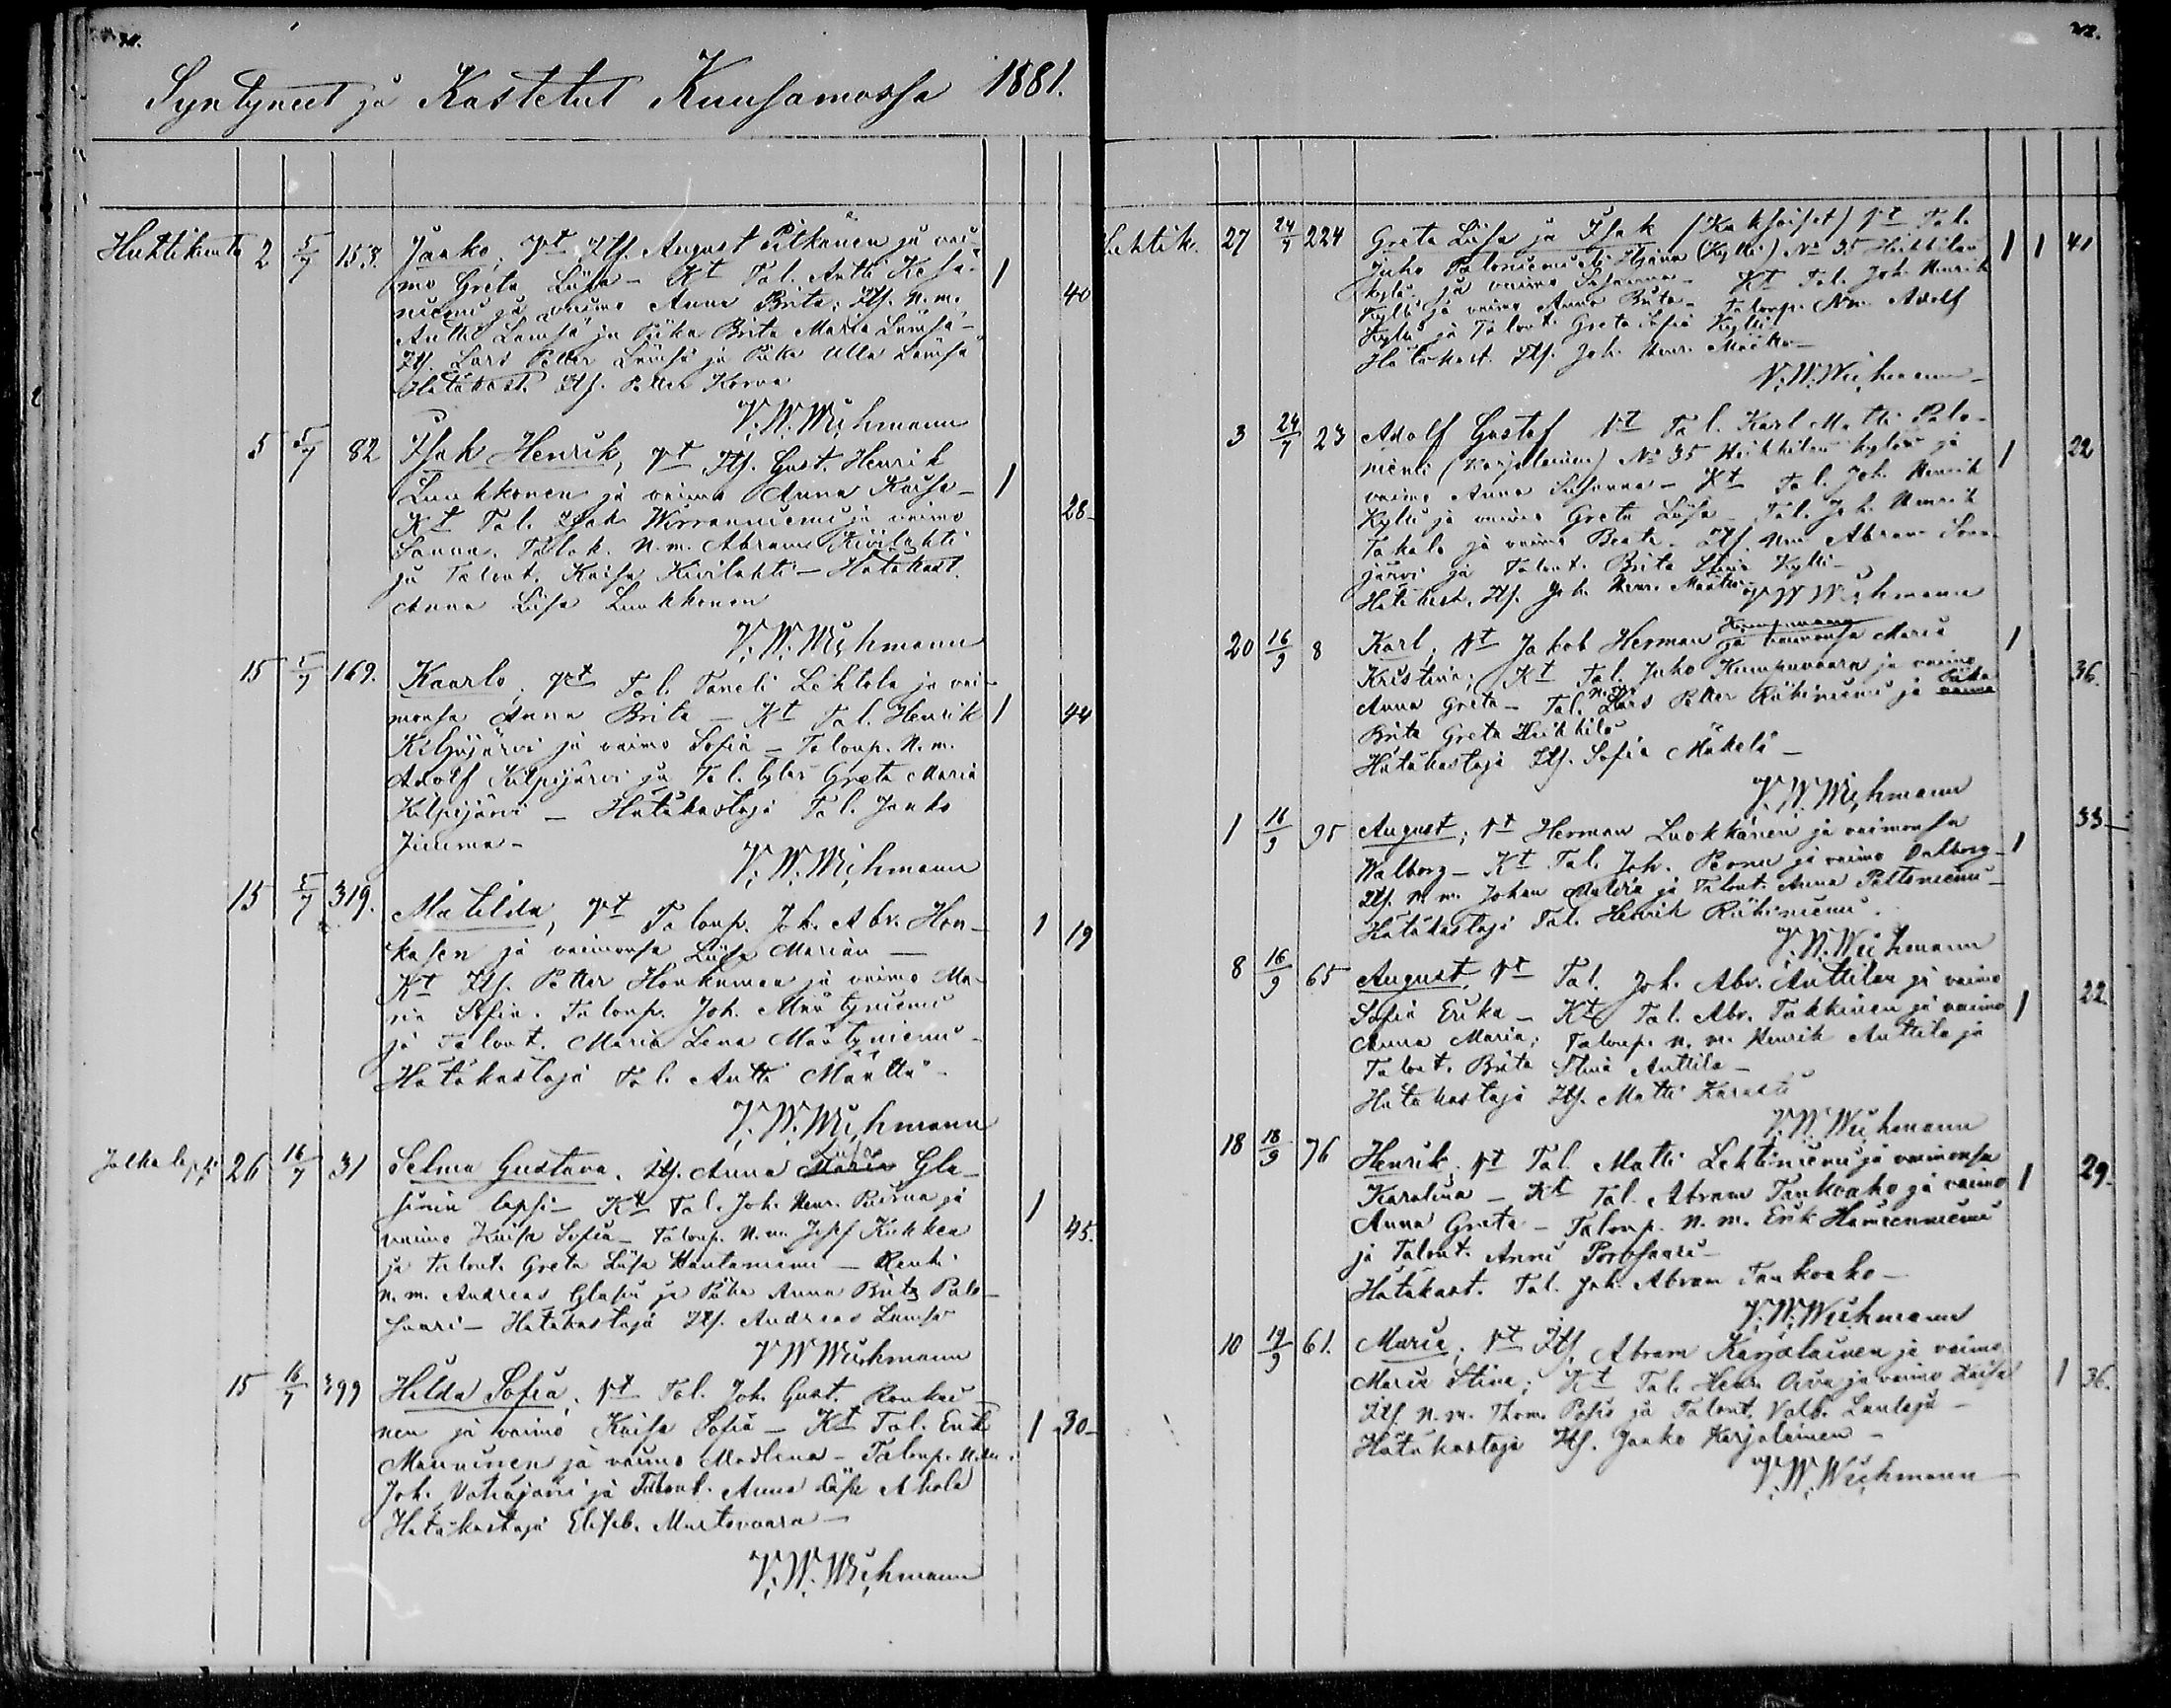 Syntyneet ja Kastetut Kuusamossa 1881.
Huhtikuuta 2 5/7 153. Jaako, Vt Its. August Pitkänen ja vai-
mo Greta Liisa – Kt Tal. Antti Kesä-
niemi ja vaimo Anna Brita; Its. N.m. 1 40
Antti Lämsä ja Piika Brita Maria Lämsä –
Its. Lars Petter Lämsä ja Piika Ulla Lämsä
Hätäkast. Its. Petter Korva
V. W. Wichmann
5 5/7 82 Isak Henrik, Vt Its. Gust. Henrik
Luukkonen ja vaimo Anna Kaisa – 1
Kt Tal. Isak Wirranniemi ja vaimo 28 –
Sanna. N.m. Abram Kivilahti
ja Talont. Kaisa Kivilahti – Hätäkast.
Anna Liisa Luukkonen
V. W. Wichmann
15 5/7 169. Kaarlo, Vt Tal. Taneli Lehtola ja vai-
monsa Anna Brita – Kt Tal. Henrik 1 44
Kilpijärvi ja vaimo Sofia – Talonp. N.m.
Adolf Kilpijärvi ja Tal. tytär Greta Maria
Kilpijärvi – Hätäkastaja Tal. Jaako
Jurmu –
V. W. Wichmann
15 5/7 319. Matilda, Vt Talonp. Joh. Abr. Hon-
kasen ja vaimonsa Liisa Marian – 1 19
Kt Its. Petter Honkanen ja vaimo Ma-
ria Sofia. Talonp. Joh. Mäntyniemi
ja Talont. Maria Lena Mäntyniemi –
Hätäkastaja Tal. Antti Määttä –
V. W. Wichmann
Jalka lapsi 26 16/7 31 Selma Gustava. Its. Anna Maria Liisa Gla-
sinin lapsi – Kt Tal. Joh. Henr. Pernu ja 1
vaimo Kaisa Sofia – Talonp. N.m. Josef Kukkea 45.
ja talont. Greta Liisa Hautaniemi – Renki
N.m. Andreas Glasin ja Piika Anna Brita Palo-
saari – Hätäkastaja Its. Andreas Lämsä
V W Wichmann
15 16/7 399 Hilda Sofia, Vt Tal. Joh. Gust. Ronkai-
nen ja vaimo Kaisa Sofia – Kt Tal. Erik 1 30 –
Manninen ja vaimo Madlena – Talonp. N.m.
Joh. Vatajärvi ja Talont. Anna Liisa Ahola
Hätäkastaja Eliseb. Murtovaara –
V. W. Wichmann
Huhtik. 27 24/7 224 Greta Liisa ja Isak (Kaksoiset) Vt Tal.
Juho Paloniemi (Kylli) No 35 Heikkilän 1 1 41
kylä ja vaimo Susanna – Kt Tal. Joh. Henrik
Kylli ja vaimo Anna Brita – Talonp. N.m. Adolf
Kylli ja Talont. Greta Sofia Kylli
Hätäkast. Its. Joh. Henr. Määttä –
V. W. Wichmann –
3 24/7 23 Adolf Gustaf Vt Tal. Karl Matti Palo-
niemi (Karjalainen) No 35 Heikkilän kylän ja 1 22
vaimo Anna Susanna – Kt Tal. Joh. Henrik
Kylli ja vaimo Greta Liisa – Tal. Joh. Henrik
Takalo ja vaimo Beata. Its. N.m. Abram
järvi ja Talont. Brita Stina Kylli –
Hätäkast. Its. Joh. Henr. Määttä – V W Wichmann
20 16/9 8 Karl, Vt Jakob Herman Kumpuvaara ja vaimonsa Maria 1
Kristina; Kt Tal. Juho Kumpuvaara ja vaimo 36.
Anna Greta – Tal. N.m. Lars Petter Riihiniemi ja vaimo Piika
Brita Greta Heikkilä
Hätäkastaja Its. Sofia Mäkelä –
V. W. Wichmann
1 16/9 95 August; Vt Herman Luokkanen ja vaimonsa 33 –
Walborg – Kt Tal. Joh. Pernu ja vaimo Valborg – 1
Its. N.m. Johan Matera ja Talont. Anna Poltoniemi –
Hätäkastaja Tal. Henrik Riihiniemi.
V. W. Wichmann
8 16/9 65 August, Vt Tal. Joh. Abr. Anttilan ja vaimo
Sofia Erika – Kt Tal. Abr. Takkinen ja vaimo 1 22
Anna Maria; Talonp. N.m. Henrik Anttila ja
Talont. Brita Stina Anttila –
Hätäkastaja Its. Matti
V. W. Wichmann
18 18/9 76 Henrik. Vt Tal. Matti Lehtiniemi ja vaimonsa
Karolina – Kt Tal. Abram Taukoaho ja vaimo 1 29.
Anna Greta – Talonp. N.m. Erik Hämeenniemi
ja Talont. Anni Porosaari –
Hätäkast. Tal. Joh. Abram Tankoaho –
V. W. Wichmann
10 19/9 61. Maria; Vt Its. Abram Karjalainen ja vaimo
Maria Stina; Kt Tal. Henr. Oiva ja vaimo Kaisa 1 36.
Its. N.m. Thom. Posio ja Talont. Valb. Laulaja –
Hätäkastaja Its. Jaako Karjalainen –
V. W. Wichmann